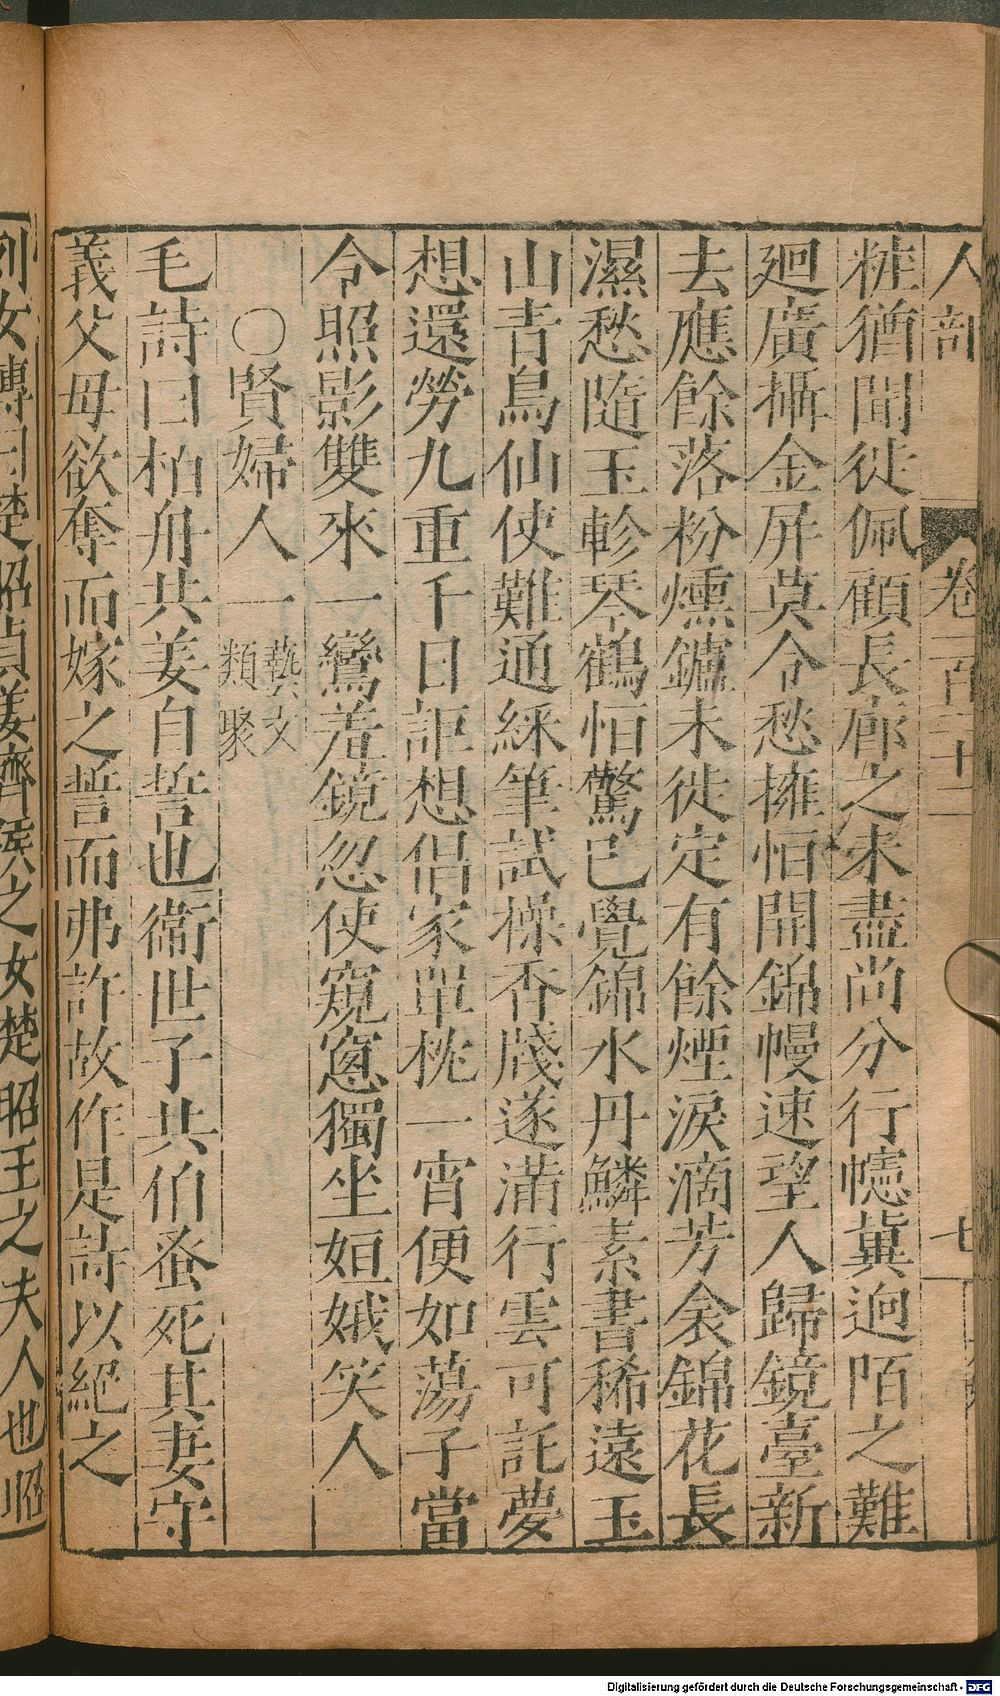 人部 卷一百二十一 七
粧猶閒徙佩顧長廊之未盡尚分行幰冀迥陌之難
廻廣攝金屏莫令愁擁怕開錦幔速望人歸鏡臺新
去應餘落粉燻鑪未徙定有餘煙淚滴芳衾錦花長
濕愁隨玉軫琴鶴怕驚已覺錦水丹鱗素書稀遠玉
山青鳥仙使難通綵筆試操香牋遂滿行雲可託夢
想還勞九重千日詎想倡家單枕一宵便如蕩子當
令照影雙來一鸞羞鏡忽使窺窻獨坐姮娥笑人
〇賢婦人一 藝文類聚
毛詩曰柏舟共姜自誓也衞世子共伯蚤死其妻守
義父母欲奪而嫁之誓而弗許故作是詩以絕之
列女傳曰楚昭貞姜齊侯之女楚昭王之夫人也昭
Digitalisierung gefördert durch die Deutsche Forschungsgemeinschaft - DFG